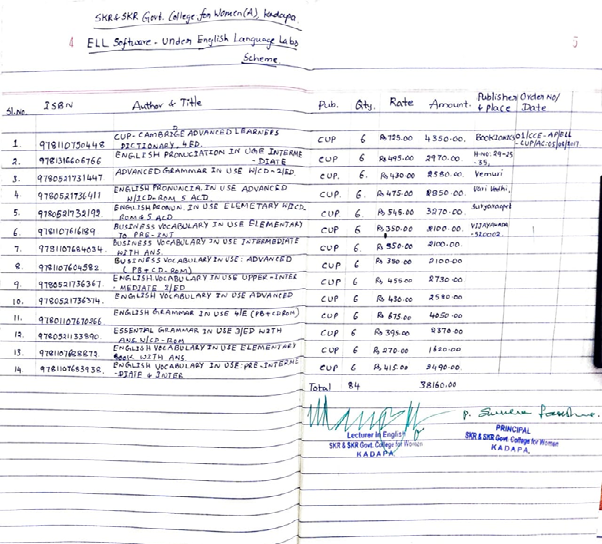 SKR & SKR Govt. College for Women(A), Kadapa.
4 ELL Software - Under English Language Labs 5
Scheme.
Sl.No. ISBN Author & Title Pub. Qty. Rate Amount. Publisher & Place Order No/ Date
1. 9781107504448 CUP - CAMBRIGE ADVANCED LEARNERS DICTIONARY, 4ED. CUP 6 Rs 725.00 4350.00. BOOKLOVERS 01/CCE-AP/ELL
2. 9781316606766 ENGLISH PRONUCIATION IN USE INTERME -DIATE CUP 6 Rs 495.00 2970.00 H.NO. 29-25 -35,
3. 9780521731447 ADVANCED GRAMMAR IN USE W/CD-2/ED. CUP. 6. Rs 430.00 2580.00 Vemuri
4. 9780521736411 ENGLISH PRONUNCIA. IN USE ADVANCED W/CD-ROM & 5 ACD CUP. 6 Rs 475.00 2850.00 Vari Vedhi,
5. 9780521732192 ENGLISH PRONUN. IN USE ELEMETARY W/CD- ROM & 5 ACD CUP 6 Rs 545.00 3270.00 Suryaraopet
6. 978110761619 BUSINESS VOCABULARY IN USE ELEMENTARY TO PRE-INT CUP 6 Rs 350.00 2100.00 VIJAYAWADA -520002.
7. 9781107684034. BUSINESS VOCABULARY IN USE INTERMEDIATE WITH ANS. CUP 6 Rs 350.00 2100.00
8. 9781107604582. BUSINESS VOCABULARY IN USE: ADVANCED (PB+CD-ROM) CUP 6 Rs 350.00 2100.00
9. 9780521736367. ENGLISH VOCABULARY IN USE UPPER-INTER -MEDIATE 2/ED CUP 6 Rs 455.00 2730.00
10. 9780521736374. ENGLISH VOCABULARY IN USE ADVANCED CUP 6 Rs 430.00 2580.00
11. ENGLISH GRAMMAR IN USE 4/E (PB+CDROM) CUP 6 Rs 675.00 4050.00
12. 9780521133890. ESSENTAL GRAMMAR IN USE 3/ED WITH ANS. W/CD-ROM CUP 6 Rs 395.00 2370.00
13. ENGLISH VOCABULARY IN USE ELEMENTARY BOOK WITH ANS. CUP 6 Rs 270.00 1620.00
14. 9781107683938. ENGLISH VOCABULARY IN USE: PRE-INTERME -DIATE & INTER CUP 6 Rs 415.00 2490.00
Total 84 38160.00
Lecturer in English
SKR & SKR Govt. College for Women
KADAPA.
PRINCIPAL
SKR & SKR Govt. College for Women
KADAPA.